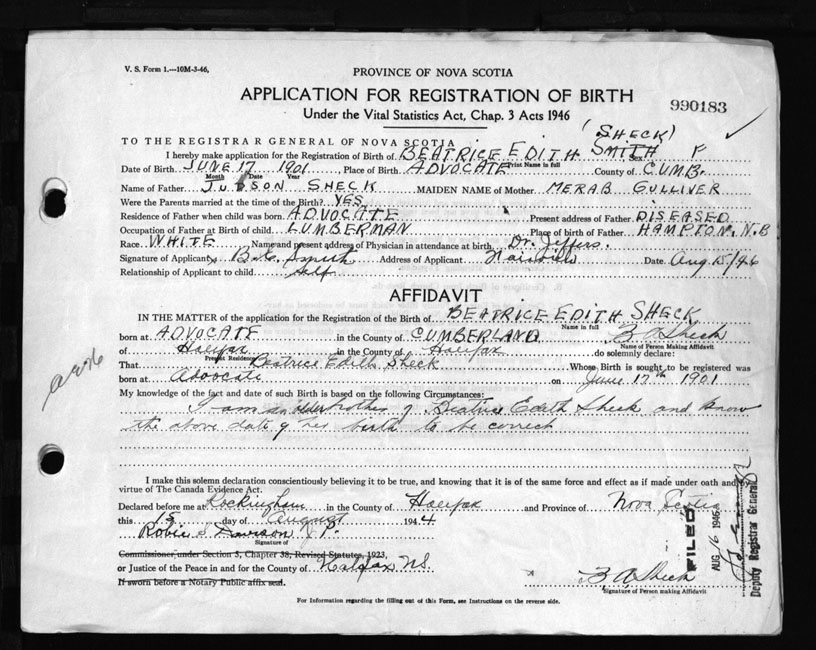 V. S. Form 1.—10M-3-46,
PROVINCE OF NOVA SCOTIA
APPLICATION FOR REGISTRATION OF BIRTH
990183
Under the Vital Statistics Act, Chap. 3 Acts 1946
(SHECK)
TO THE REGISTRAR GENERAL OF NOVA SCOTIA
I hereby make application for the Registration of Birth of BEATRICE EDITH SMITH Sex F
Print Name in Full
Date of Birth JUNE 17 1901 Place of Birth ADVOCATE County of CUMB.
Month Date Year
Name of Father JUDSON SHECK MAIDEN NAME of Mother MERAB GULLIVER
Were the Parents married at the time of Birth? YES
Residence of Father when child was born ADVOCATE Present address of Father DISEASED
Occupation of Father at Birth of child LUMBERMAN Place of birth of Father HAMPTON, N.B
Race WHITE Name and present address of Physician in attendance at birth Dr. Jeffers.
Signature of Applicant B. E. Smith Address of Applicant Date Aug 15/46
Relationship of Applicant to child self
AFFIDAVIT
IN THE MATTER of the application for the Registration of the Birth of BEATRICE EDITH SHECK
Name in full
born at ADVOCATE in the County of CUMBERLAND B A Sheck
Name of Person Making Affidavit
of Halifax in the County of Halifax do solemnly declare:
Present Residence
That Beatrice Edith Sheck Whose Birth is sought to be registered was
born at Advocate on June 17th 1901
My knowledge of the fact and date of such Birth is based on the following Circumstances:
I am an elder brother of Beatrice Edith Sheck and know
the above date of her birth to be correct
I make this solemn declaration conscientiously believing it to be true, and knowing that it is of the same force and effect as if made under oath and by
virtue of The Canada Evidence Act.
Declared before me at Rockingham in the County of Halifax and Province of Nova Scotia
this 15 day of August 1944
Robie S Davison J.P.
Signature of
Commissioner under Section 3, Chapter 38, Revised Statutes, 1923,
or Justice of the Peace in and for the County of Halifax NS.
If sworn before a Notary Public affix seal.
B A Sheck
Signature of Person making Affidavit
For Information regarding the filling out of this Form, see Instructions on the reverse side.
FILED
AUG 16 1946
Deputy Registrar General